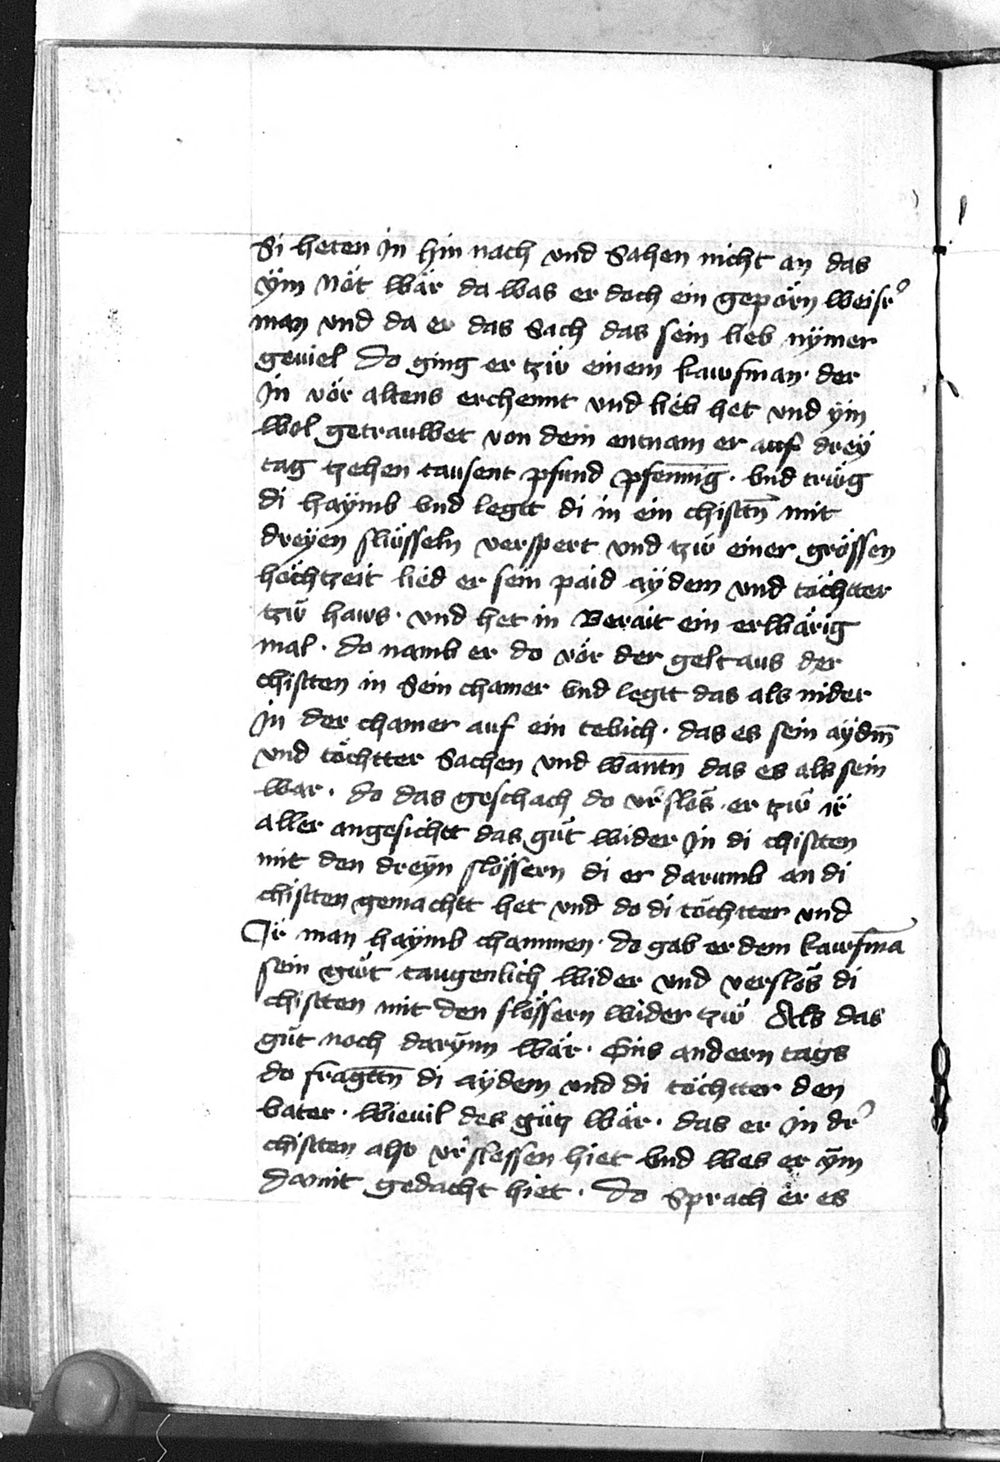 Si heten in hin nach vnd Sahen nicht an das
ÿm Nöt wär da was er doch ein gepörn weisr̉
man vnd da er das Sach das sein lieb nÿmer
geuiel Do ging er tzẅ einem kawfman · der
in vör altens erchennt vnd lieb het vnd ÿm
wol getrauwet von dem entnam er auf dreÿ
tag tzehen tausent pfund pfenni̅g · vnd trẅg
di haÿmb vnd legtt di in ein chistn̅ mit
dreÿen slüsseln verspert vnd tzẅ einer grössen
höchtzeit lied er sein paid aÿdem vnd töchtter
tzẅ haws · vnd het in Berait ein erwärig
mal · do namb er do vör der gelt aus der
chistten in Sein chamer vnd legtt das als nider
in der chamer auf ein tebich · das es sein aÿdm̅
vnd töchtter Sachen vnd wantn̅ das es als sein
war · do das geschach do vr̉slös er tzẅ ir
aller angesichtt das güt wider in di chistten
mit den dreÿn slössern di er darumb an di
chistten gemachtt het vnd do di töchtter vnd
Ir man haÿmb chammen · do gab er dem kawfm̅a
sein gẅt taugenlich wider vnd verslös di
chistten mit den slössern wider tzẅ Als das
güt noch darÿnn wär · Ens andern tags
do fragttn̅ di aÿdem vnd di töchtter den
vater · wieuil des gütz wär · das er in dr̉
chistten also vr̉slossen hiet vnd wes er ÿm
damit gedacht hiet · Do Sprach er es